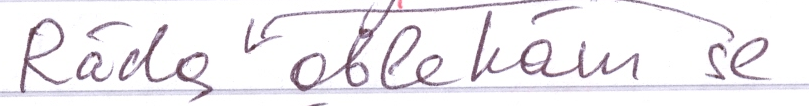 Ráda oblekám se